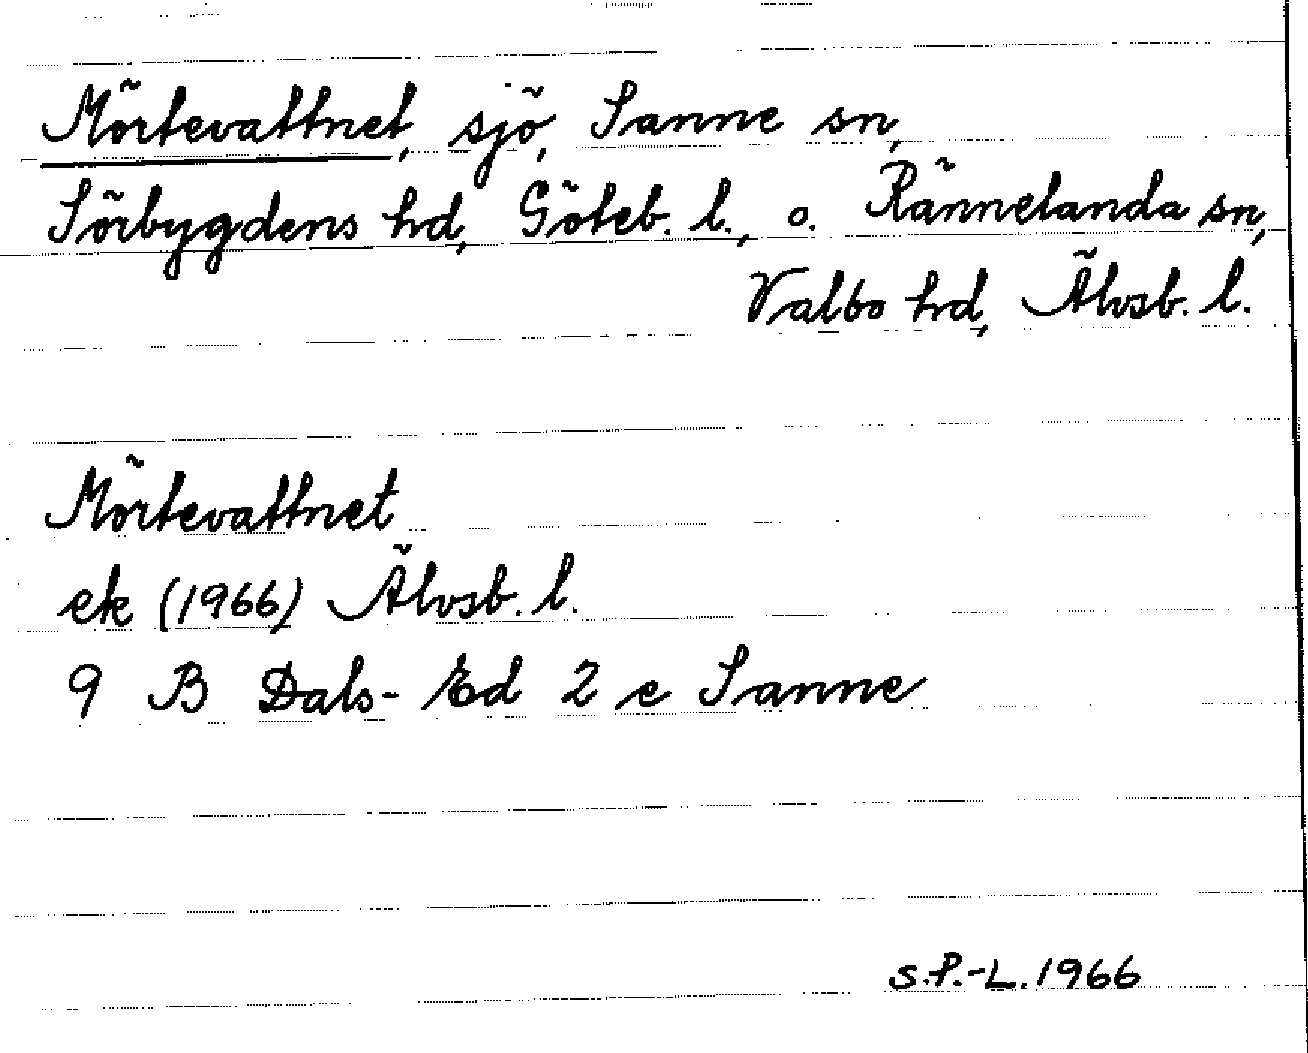 Mörtevattnet, sjö, Sanne sn,
Sörbygdens hd, Göteb. l., o. Rännelanda sn,
Valbo hd, Älvsb. l.
Mörtevattnet
ek (1966) Älvsb. l.
9 B Dals-Ed 2 e Sanne
S.P.-L. 1966